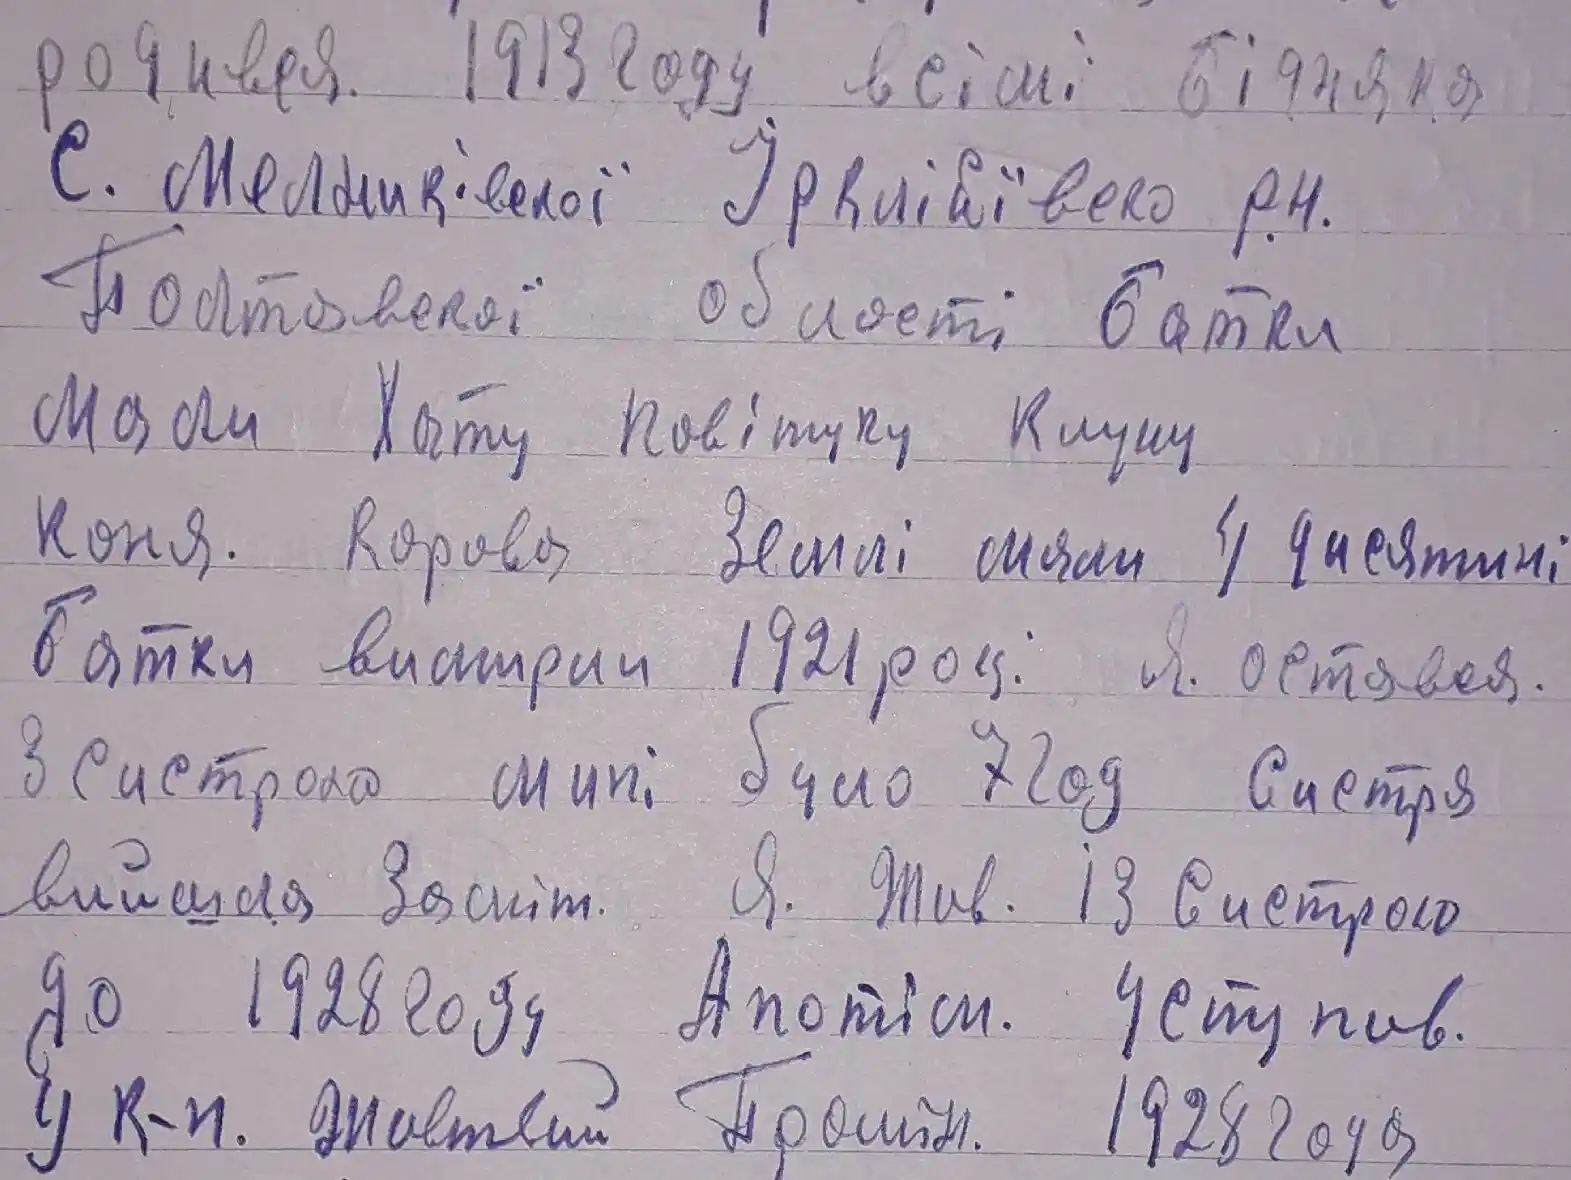 родився. 1913 году всімі бідняка
С. Мелникі́вскої Іркліївско р.н.
Полтавскої області батки
мали Хату повітуку клуну
коня. корова Землі мали 4 дисятині
батки вимирли 1921 році Я. остався.
З систрою мині було 7 год Систра
вийшла Заміт. Я. Жив. із Систрою
до 1928 году А потім. уступив.
у к-п. жовтвий Промін. 1928 года